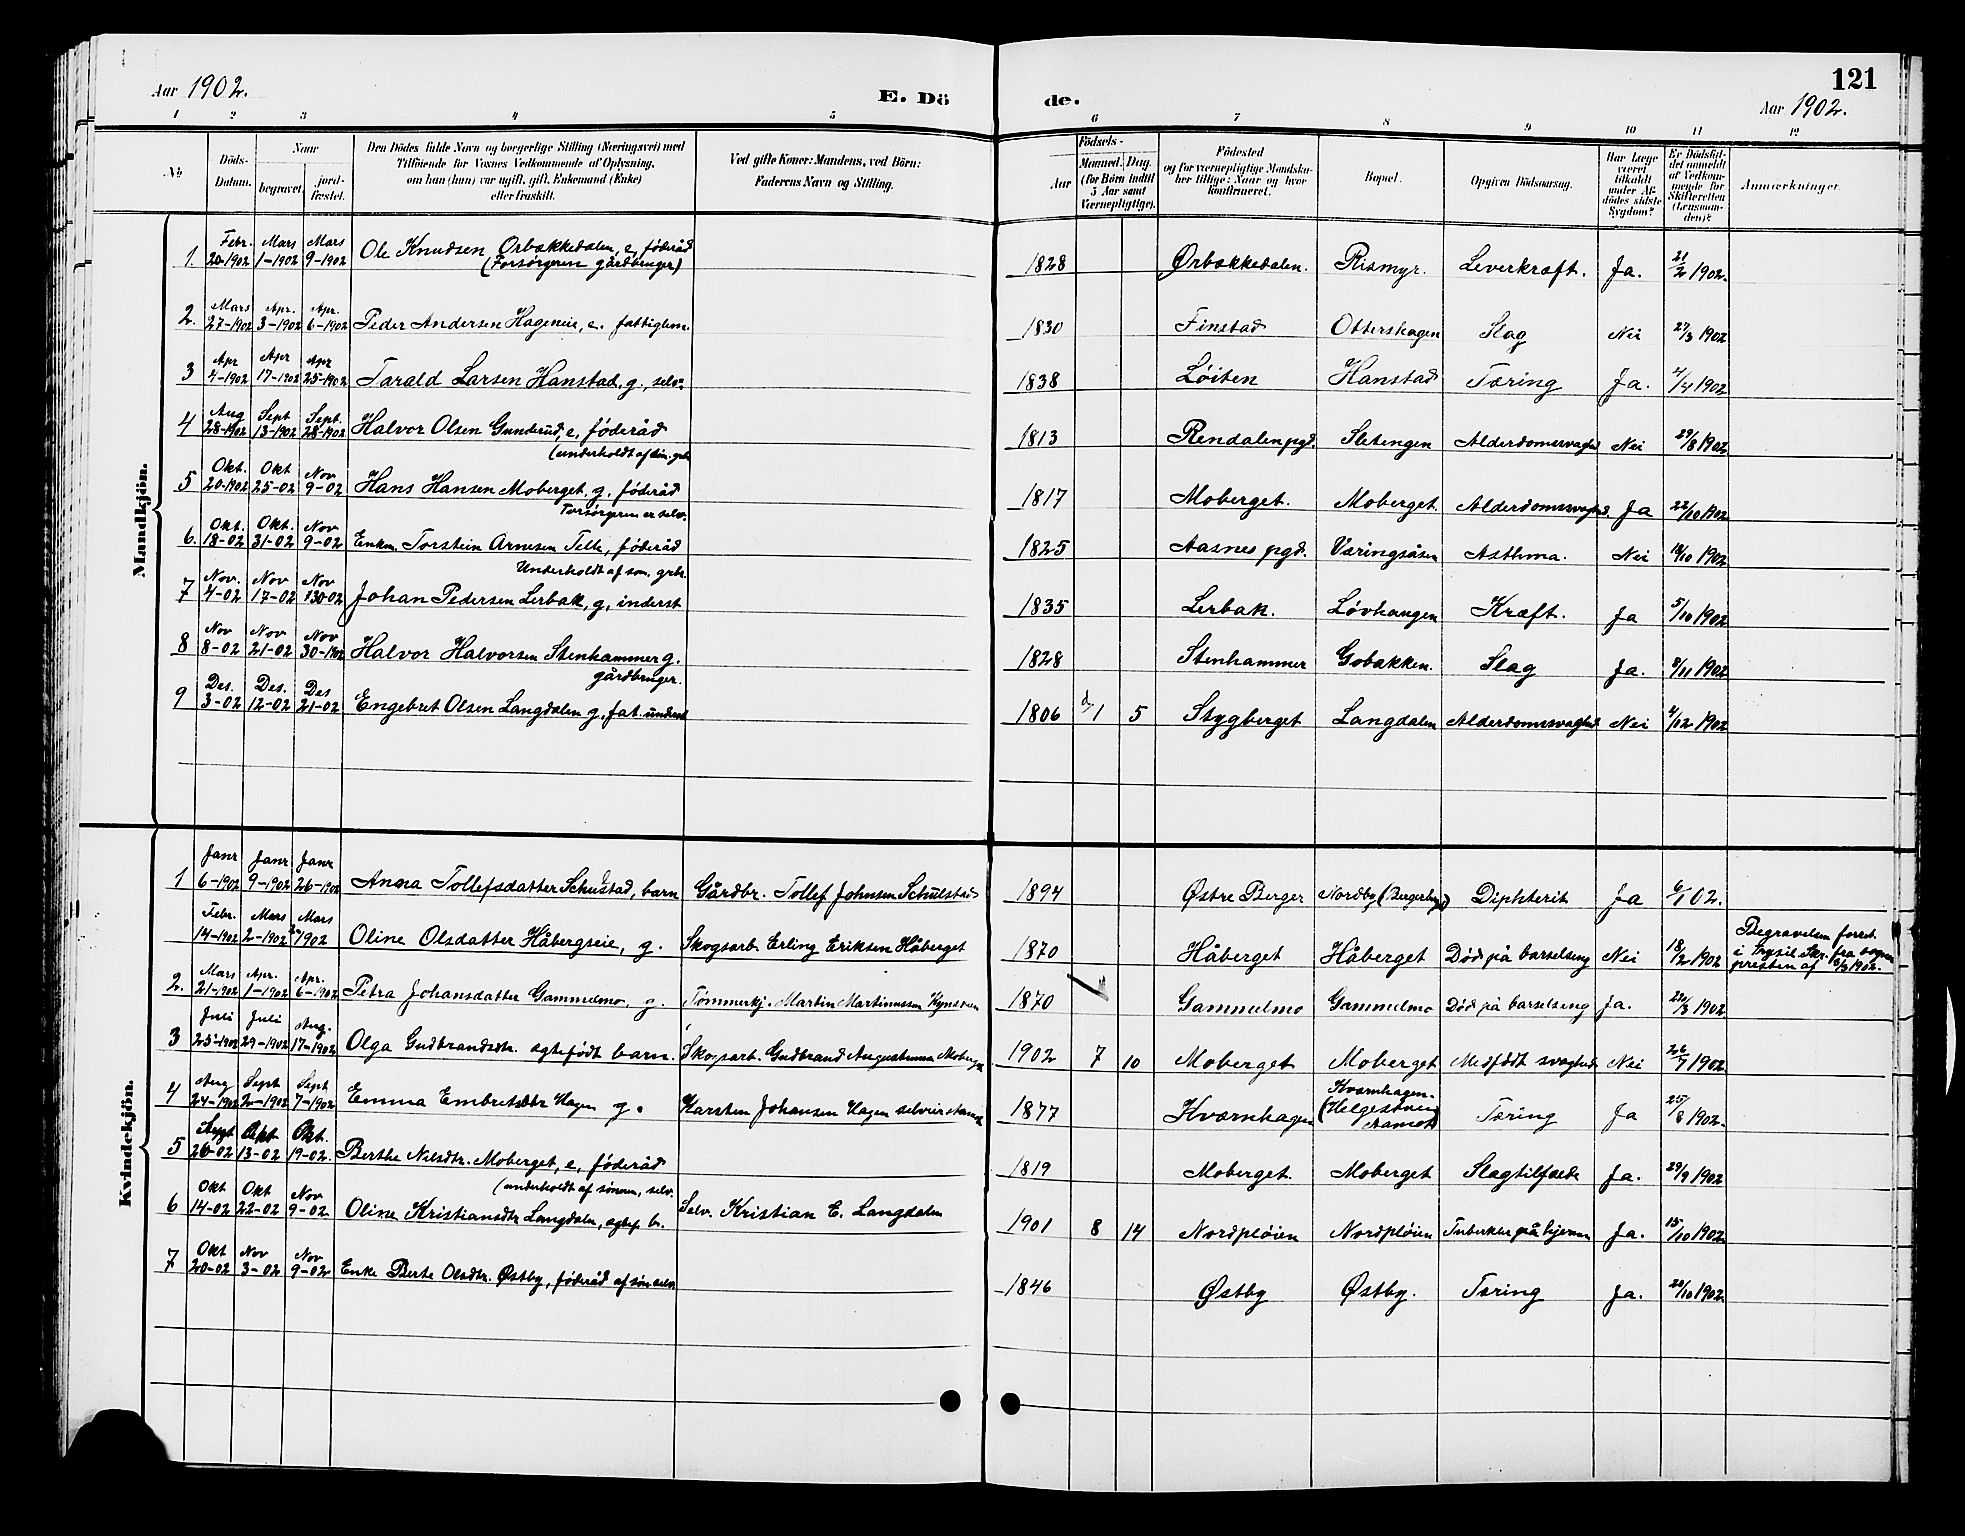 121
Aar 1902.
E. Dö
de.
Aar 1902.
1 2 3 4 5 6 7 8 9 10 11 12
No
Döds-
Datum.
Naar
begravet.
jord-
fæstet.
Den Dödes fulde Navn og borgerlige Stilling (Næringsvei) med
Tilföiende for Voxnes Vedkommende af Oplysning,
om han (hun) var ugift, gift, Enkemand (Enke)
eller fraskilt.
Ved gifte Koner: Mandens, ved Börn:
Faderens Navn og Stilling.
Födsels-
Aar
Maaned. Dag.
(for Börn indtil
5 Aar samt
Værnepligtige).
Födested
og for værnepligtige Mandska-
ber tillige: Naar og hvor
konfirmeret.
Bopæl.
Opgiven Dödsaarsag.
Har Læge
været
tilkaldt
under Af-
dödes sidste
Sygdom?
Er Dödsfal-
det anmeldt
af Vedkom-
mende for
Skifteretten
(Lensman-
den)?
Anmærkninger.
Mandkjön.
Febr. Mars Mars
1. 20-1902 1-1902 9-1902 Ole Knudsen Ørbækkedalen, e, føderåd
(Forsørgeren gårdbruger)
1828 Ørbækkedalen. Rismyr. Leverkræft. Ja. 21/2 1902.
Mars Apr. Apr.
2. 27-1902 3-1902 6-1902 Peder Andersen Hageneie, e. fattiglem. 1830 Finstad Ottershagen Slag Nei 27/3 1902
Apr Apr Apr
3 4-1902 17-1902 25-1902 Tarald Larsen Hanstad, g., selv. 1838 Løiten Hanstad Tæring Ja. 4/4 1902
Aug Sept Sept.
4 28-1902 13-1902 28-1902 Halvor Olsen Gunderud, e, føderåd
(underholdt af søn. grb.
1813 Rendalen pgd. Sletengen Alderdomssvaghed Nei 29/8 1902
Okt. Okt Nov
5 20-1902 25-02 9-02 Hans Hansen Moberget, g. føderåd
Forsørgeren er selv.
1817 Moberget. Moberget. Alderdomssvaghed. Ja 22/10 1902
Okt. Okt. Nov
6. 18-02 31-02 9-02 Enkm. Torstein Arnesen Telle, føderåd
Underholdt af søn. grbr.
1825 Aasnes pgd. Væringsåsen Asthma. Nei 18/10 1902
Nov. Nov Nov
7 4-02 17-02 30-02 Johan Pedersen Lerbak, g, inderst 1835 Lerbak. Løvhaugen Kræft. Ja 5/10 1902
Nov Nov Nov
8 8-02 21-02 30-1902 Halvor Halvorsen Stenhammer g.
gårdbruger.
1828 Stenhammer Gobakken. Slag Ja. 8/11 1902
Des. Des. Des
9 3-02 12-02 21-02 Engebret Olsen Langdalen g, fat. underst 1806 1 5 Stygberget Langdalen Alderdomssvaghed Nei 4/12 1902
Kvindekjön.
Janr Janr Janr
1 6-1902 9-1902 26-1902 Anna Tollefsdatter Schulstad, barn Gårdbr. Tollef Johnsen Schulstad 1894 Østre Berger Nordby (Bergerby) Diphterit Ja 6/1 02.
Febr. Mars Mars
14-1902 2-1902 1902 Oline Olsdatter Håbergseie, g. Skogsarb. Erling Eriksen Håberget 1870 Håberget Håberget Død på barselseng Nei 18/2 1902
Begravelsen forret.
i Trysil Skr. fra sogne
presten af 18/3 1902.
Mars Apr. Apr.
2. 21-1902 1-1902 6-1902 Petra Johansdatter Gammelmo, g. Tømmerkj. Martin Martinussen Kynsveen 1870 Gammelmo Gammelmo Død på barselseng Ja. 22/3 1902
Juli Juli Aug.
3 25-1902 29-1902 17-1902 Olga Gudbrandsdtr. ægtefødt barn. Skogsarb. Gudbrand Augustinusen Moberget 1902 7 10 Moberget Moberget Medfødt svaghed Nei 26/7 1902
Aug Sept Sept
4 24-1902 2-1902 7-1902 Emma Embretsdtr Hagen g. Karsten Johansen Hagen selveier 1877 Kværnhagen Kværnhagen. Tæring Ja 25/8 1902.
Sept Okt Okt.
5 26-02 13-02 19-02. Berthe Nilsdtr. Moberget, e, føderåd
(underholdt af sønnen, selv.
1819 Moberget. Moberget Slagtilfælde Ja. 29/9 1902
Okt Okt Nov
6 14-02 22-02 9-02 Oline Kristiansdtr Langdalen, ægtef. b. Selv. Kristian E. Langdalen 1901 8 14 Nordpløien Nordpløien Tuberkler på hjernen Ja. 15/10 1902
Okt Nov Nov
7 20-02 3-02 9-02 Enke Berte Olsdtr. Østby, føderåd af søn. selv. 1846 Østby Østby. Tæring Ja. 22/10 1902